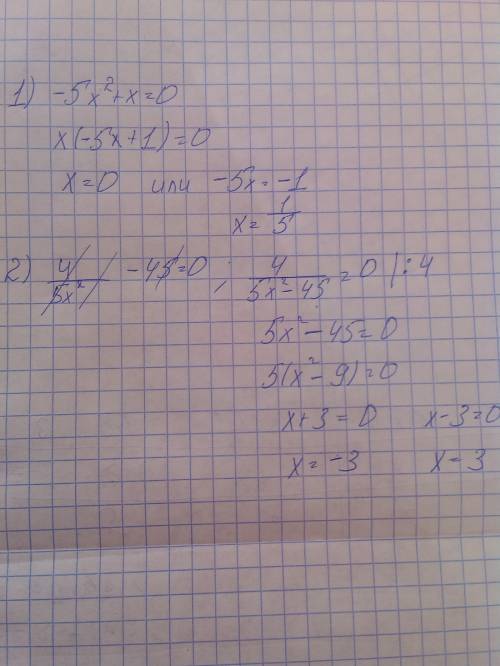 1) -5x²+x=0
x(-5x+1)=0
x=0 или -5x=-1
x=1/5
2) 4/5x² -45=0 ; 4/(5x²-45)=0 |:4
5x²-45=0
5(x²-9)=0
x+3=0 x-3=0
x=-3 x=3